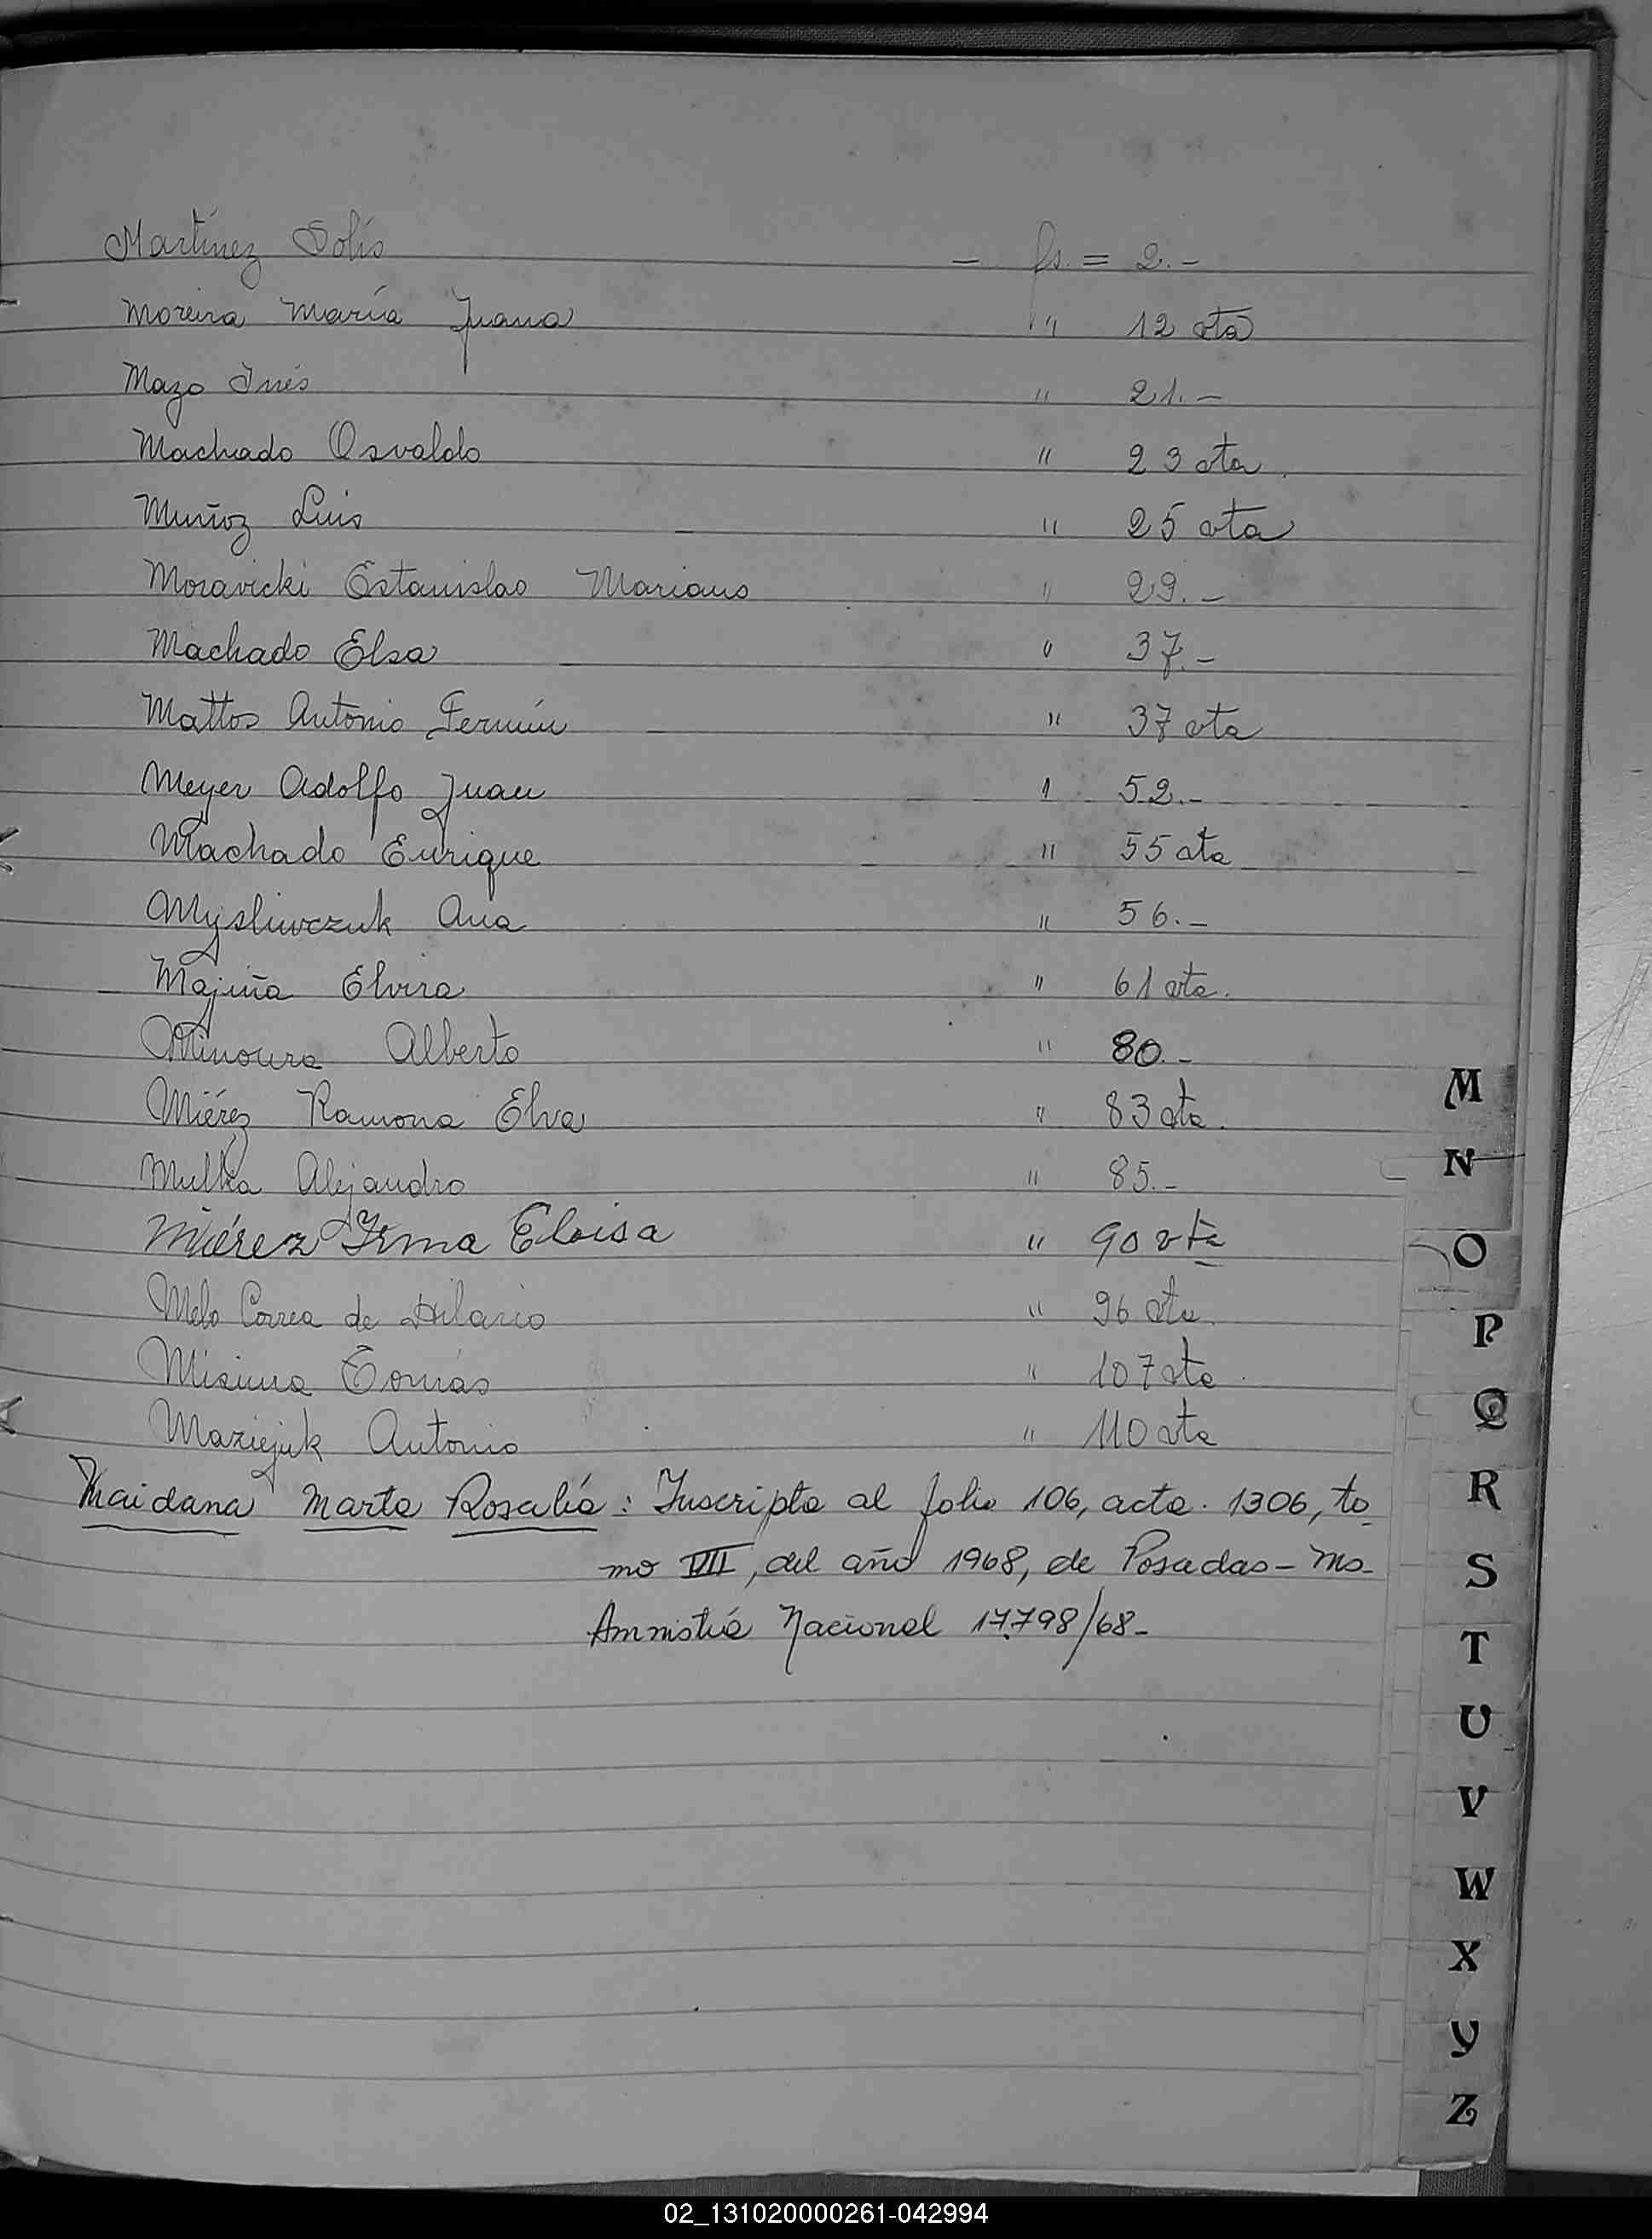 Martínez Solís — fs. = 2.-
Moreira María Juana " 12 vta
Mazo Inés " 21.-
Machado Osvaldo " 23 vta.
Muñoz Luis " 25 vta
Moravicki Estanislao Mariano " 29.-
Machado Elsa " 37.-
Mattos Antonio Fermín " 37 vta
Meyer Adolfo Juan " 52.-
Machado Enrique " 55 vta
Mysliwczuk Ana " 56.-
Majiña Elvira " 61 vta.
Minoura Alberto " 80.-
Miérez Ramona Elva " 83 vta.
Mulka Alejandro " 85.-
Miérez Irma Eloisa " 90 vta
Melo Correa de Hilario " 96 vta.
Misiura Tomás " 107 vta
Maziejuk Antonio " 110 vta
Maidana Marta Rosalía : Inscripta al folio 106, acta. 1306, to
mo VII, del año 1968, de Posadas - Ms.
Amnistía Nacional 17.798/68-
M
N
O
P
Q
R
S
T
U
V
W
X
Y
Z
02_131020000261-042994